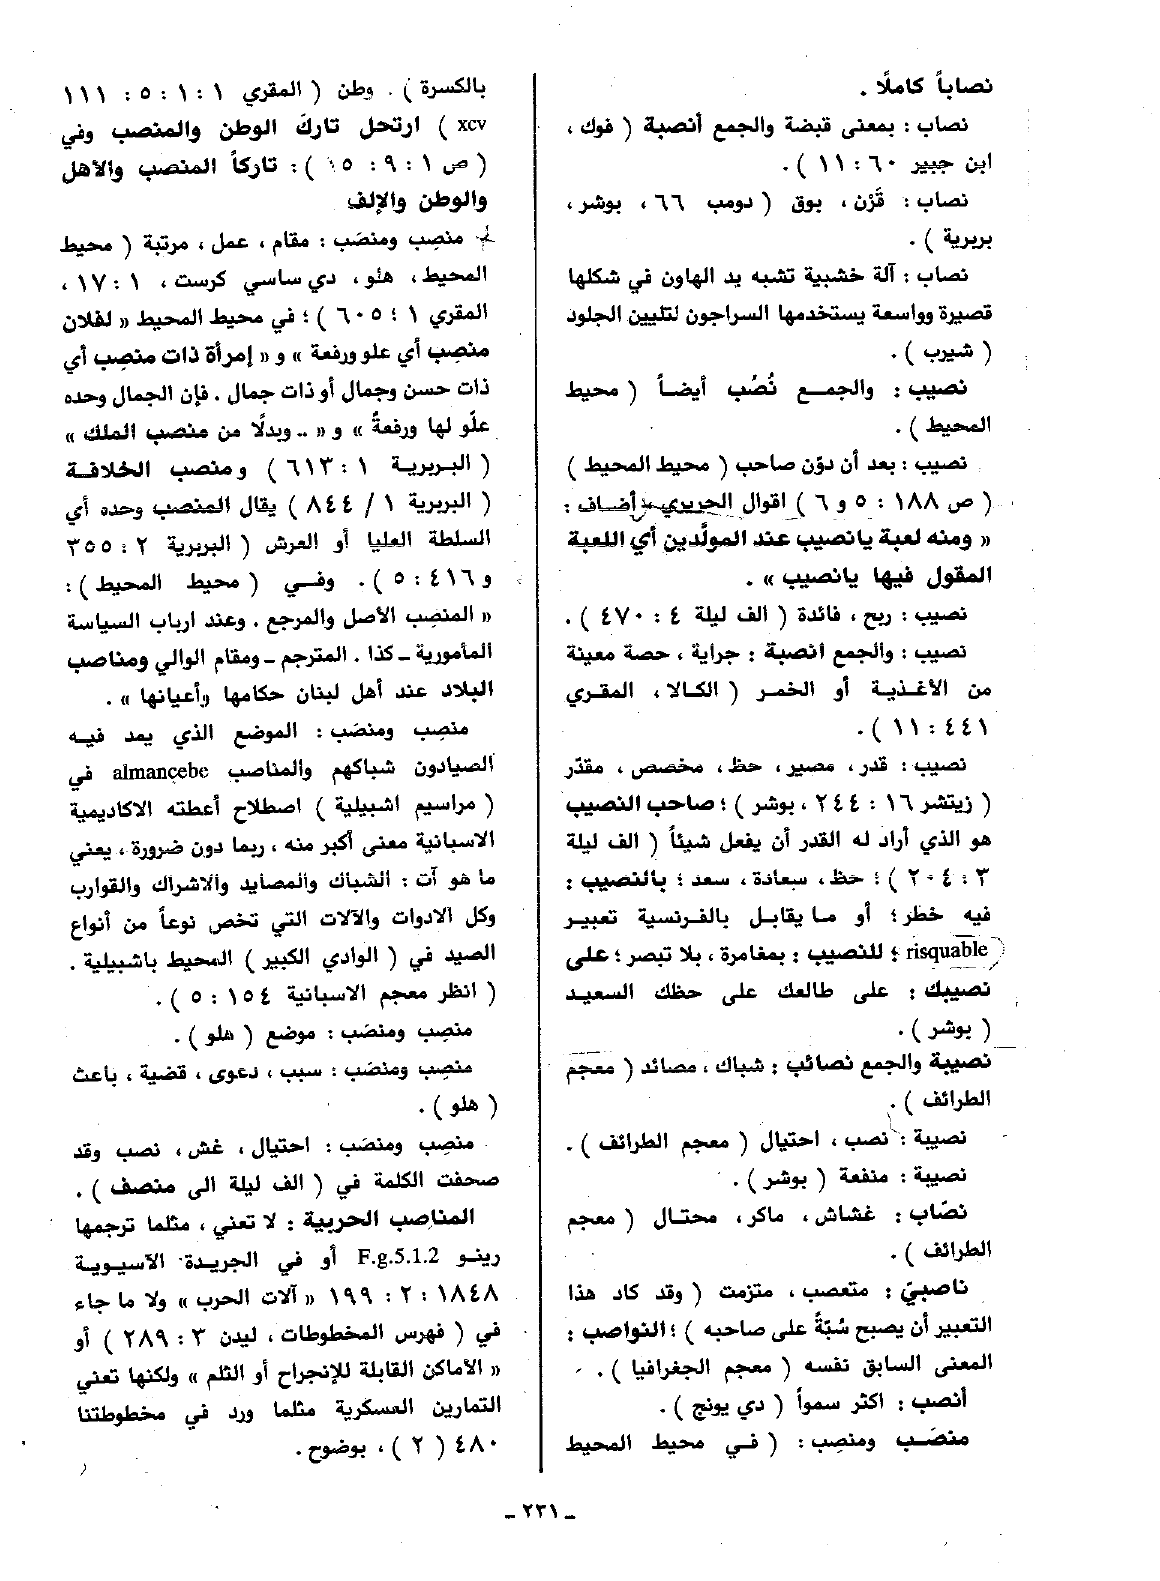 نصاباً كاملًا .
نصاب : بمعنى قبضة والجمع أنصبة ( فوك ،
ابن جبير ٦٠ : ١١ ) .
نصاب : قَرْن ، بوق ( دومب ٦٦ ، بوشر ،
بربرية ) .
نصاب : آلة خشبية تشبه يد الهاون في شكلها
قصيرة وواسعة يستخدمها السراجون لتليين الجلود
( شيرب ) .
نصيب : والجمع نُصُب أيضاً ( محيط
المحيط ) .
نصيب : بعد أن دوّن صاحب ( محيط المحيط )
( ص ١٨٨ : ٥ و ٦ ) اقوال الحريري أضاف :
« ومنه لعبة يانصيب عند المولّدين أي اللعبة
المقول فيها يانصيب » .
نصيب : ربح ، فائدة ( الف ليلة ٤ : ٤٧٠ ) .
نصيب : والجمع انصبة : جراية ، حصة معينة
من الأغذية أو الخمر ( الكالا ، المقري
٤٤١ : ١١ ) .
نصيب : قدر ، مصير ، حظ ، مخصص ، مقدّر
( زيتشر ١٦ : ٢٤٤ ، بوشر ) ؛ صاحب النصيب
هو الذي أراد له القدر أن يفعل شيئاً ( الف ليلة
٣ : ٢٠٤ ) ؛ حظ ، سعادة ، سعد ؛ بالنصيب :
فيه خطر ؛ أو ما يقابل بالفرنسية تعبير
risquable ؛ للنصيب : بمغامرة ، بلا تبصر ؛ على
نصيبك : على طالعك على حظك السعيد
( بوشر ) .
نصيبة والجمع نصائب : شباك ، مصائد ( معجم
الطرائف ) .
نصيبة : نصب ، احتيال ( معجم الطرائف ) .
نصيبة : منفعة ( بوشر ) .
نصّاب : غشاش ، ماكر ، محتال ( معجم
الطرائف ) .
ناصبيّ : متعصب ، متزمت ( وقد كاد هذا
التعبير أن يصبح سُبّةً على صاحبه ) ؛ النواصب :
المعنى السابق نفسه ( معجم الجغرافيا ) .
أنصب : اكثر سمواً ( دي يونج ) .
منصَب ومنصِب : ( في محيط المحيط
بالكسرة ) . وطن ( المقري ١ : ١ : ٥ : ١١١
xcv ) ارتحل تاركَ الوطن والمنصب وفي
( ص ١ : ٩ : ١٥ ) : تاركاً المنصب والأهل
والوطن والإلف
منصِب ومنصَب : مقام ، عمل ، مرتبة ( محيط
المحيط ، هلو ، دي ساسي كرست ، ١ : ١٧ ،
المقري ١ : ٦٠٥ ) ؛ في محيط المحيط « لفلان
منصِب أي علو ورفعة » و « إمرأة ذات منصِب أي
ذات حسن وجمال أو ذات جمال . فإن الجمال وحده
علّو لها ورفعةً » و « .. وبدلًا من منصب الملك »
( البربرية ١ : ٦١٣ ) ومنصب الخلافة
( البربرية ١ / ٨٤٤ ) يقال المنصب وحده أي
السلطة العليا أو العرش ( البربرية ٢ : ٣٥٥
و ٤١٦ : ٥ ) . وفي ( محيط المحيط ) :
« المنصِب الأصل والمرجع . وعند ارباب السياسة
المأمورية ـ كذا . المترجم ـ ومقام الوالي ومناصب
البلاد عند أهل لبنان حكامها وأعيانها » .
منصِب ومنصَب : الموضع الذي يمد فيه
الصيادون شباكهم والمناصب almançebe في
( مراسيم اشبيلية ) اصطلاح أعطته الاكاديمية
الاسبانية معنى أكبر منه ، ربما دون ضرورة ، يعني
ما هو آت : الشباك والمصايد والاشراك والقوارب
وكل الادوات والآلات التي تخص نوعاً من أنواع
الصيد في ( الوادي الكبير ) المحيط باشبيلية .
( انظر معجم الاسبانية ١٥٤ : ٥ ) .
منصِب ومنصَب : موضع ( هلو ) .
منصِب ومنصَب : سبب ، دعوى ، قضية ، باعث
( هلو ) .
منصِب ومنصَب : احتيال ، غش ، نصب وقد
صحفت الكلمة في ( الف ليلة الى منصف ) .
المناصب الحربية : لا تعني ، مثلما ترجمها
رينو F.g.5.1.2 أو في الجريدة الآسيوية
١٨٤٨ : ٢ : ١٩٩ « آلات الحرب » ولا ما جاء
في ( فهرس المخطوطات ، ليدن ٣ : ٢٨٩ ) أو
« الأماكن القابلة للإنجراح أو الثلم » ولكنها تعني
التمارين العسكرية مثلما ورد في مخطوطتنا
٤٨٠ ( ٢ ) ، بوضوح .
ـ ٢٣١ ـ